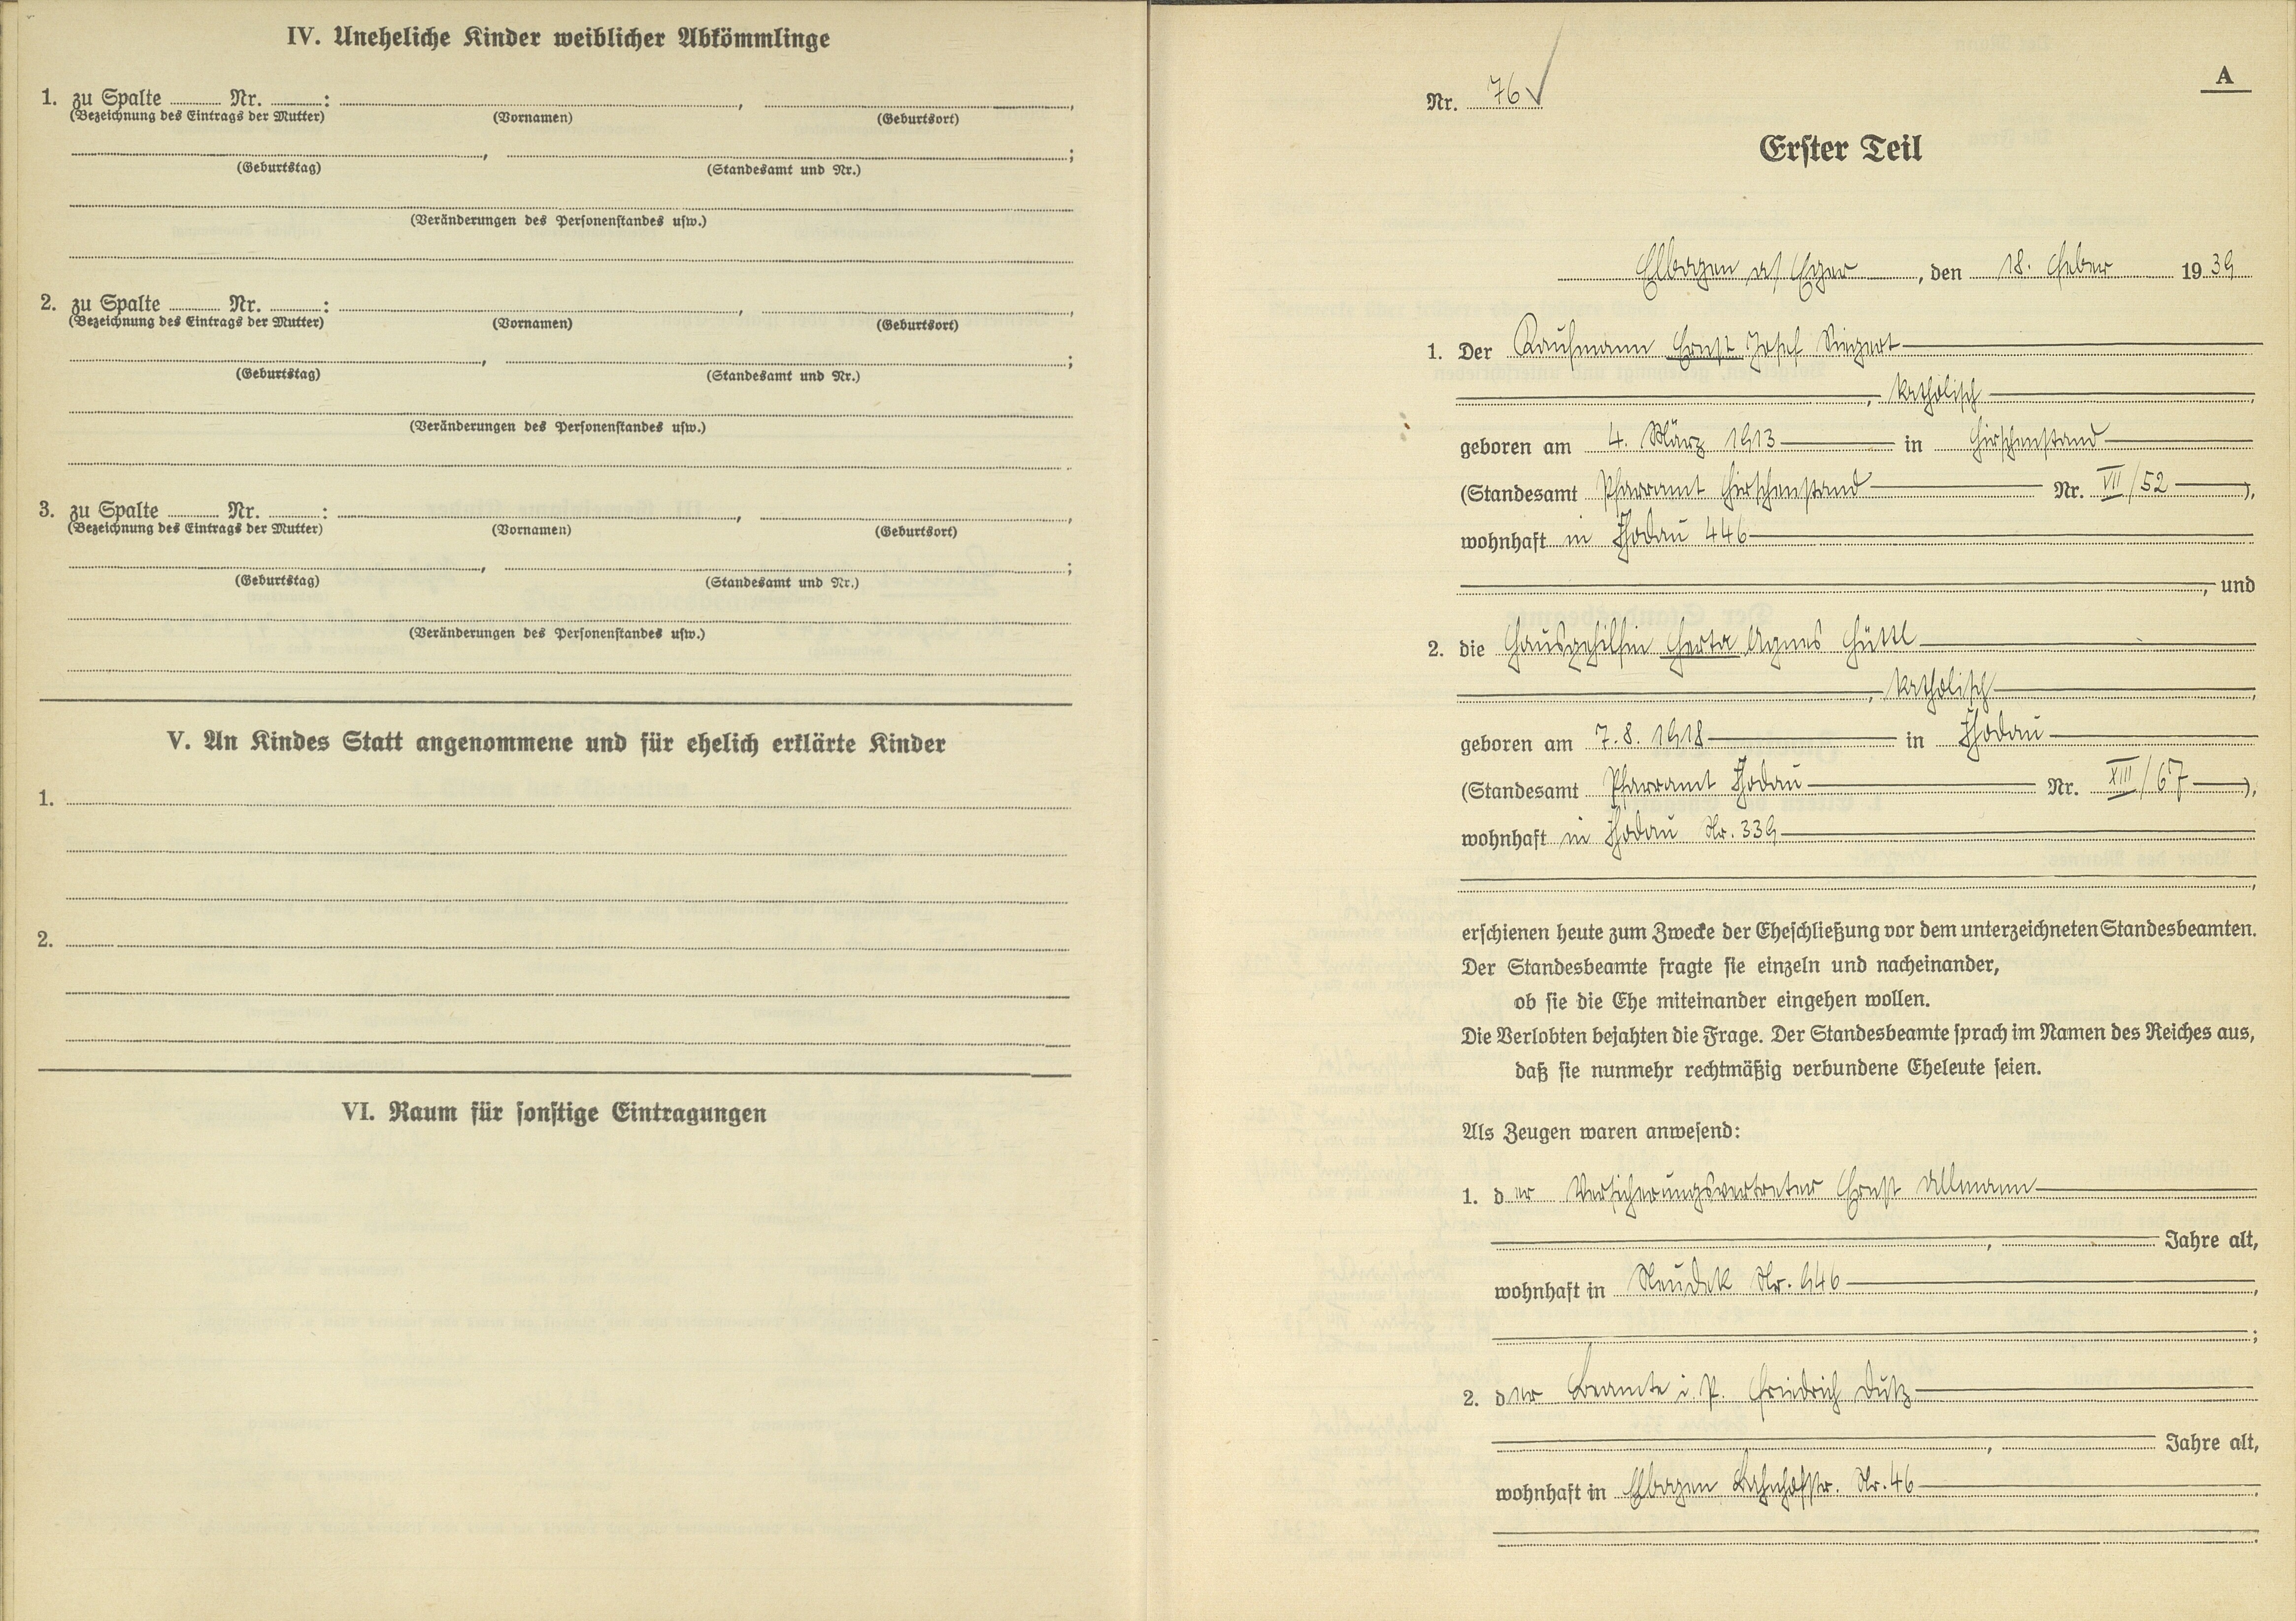 IV. Uneheliche Kinder weiblicher Abkömmlinge
1. zu Spalte ........ Nr. ........: ........, ........,
(Bezeichnung des Eintrags der Mutter) (Vornamen) (Geburtsort)
........, ........;
(Geburtstag) (Standesamt und Nr.)
(Veränderungen des Personenstandes usw.)
2. zu Spalte ........ Nr. ........: ........, ........,
(Bezeichnung des Eintrags der Mutter) (Vornamen) (Geburtsort)
........, ........;
(Geburtstag) (Standesamt und Nr.)
(Veränderungen des Personenstandes usw.)
3. zu Spalte ........ Nr. ........: ........, ........,
(Bezeichnung des Eintrags der Mutter) (Vornamen) (Geburtsort)
........, ........;
(Geburtstag) (Standesamt und Nr.)
(Veränderungen des Personenstandes usw.)
V. An Kindes Statt angenommene und für ehelich erklärte Kinder
1.
2.
VI. Raum für sonstige Eintragungen
A
Nr. 76
Erster Teil
Elbogen a/Eger, den 18. Feber 1939
1. Der Kaufmann Ernst Josef Siegert
, katholisch,
geboren am 4. März 1913 in Hirschenstand
(Standesamt Pfarramt Hirschenstand Nr. VII/52),
wohnhaft in Chodau 446
, und
2. die Hausgehilfin Herta Agnes Hüttl
, katholisch,
geboren am 7.8.1918 in Chodau
(Standesamt Pfarramt Chodau Nr. XIII/67),
wohnhaft in Chodau Nr. 339
,
erschienen heute zum Zwecke der Eheschließung vor dem unterzeichneten Standesbeamten.
Der Standesbeamte fragte sie einzeln und nacheinander,
ob sie die Ehe miteinander eingehen wollen.
Die Verlobten bejahten die Frage. Der Standesbeamte sprach im Namen des Reiches aus,
daß sie nunmehr rechtmäßig verbundene Eheleute seien.
Als Zeugen waren anwesend:
1. der Versicherungsvertreter Ernst Ullmann
, Jahre alt,
wohnhaft in Neudek Nr. 946,
;
2. der Beamte i. P. Friedrich Dutz
, Jahre alt,
wohnhaft in Elbogen Bahnhofstr. Nr. 46.